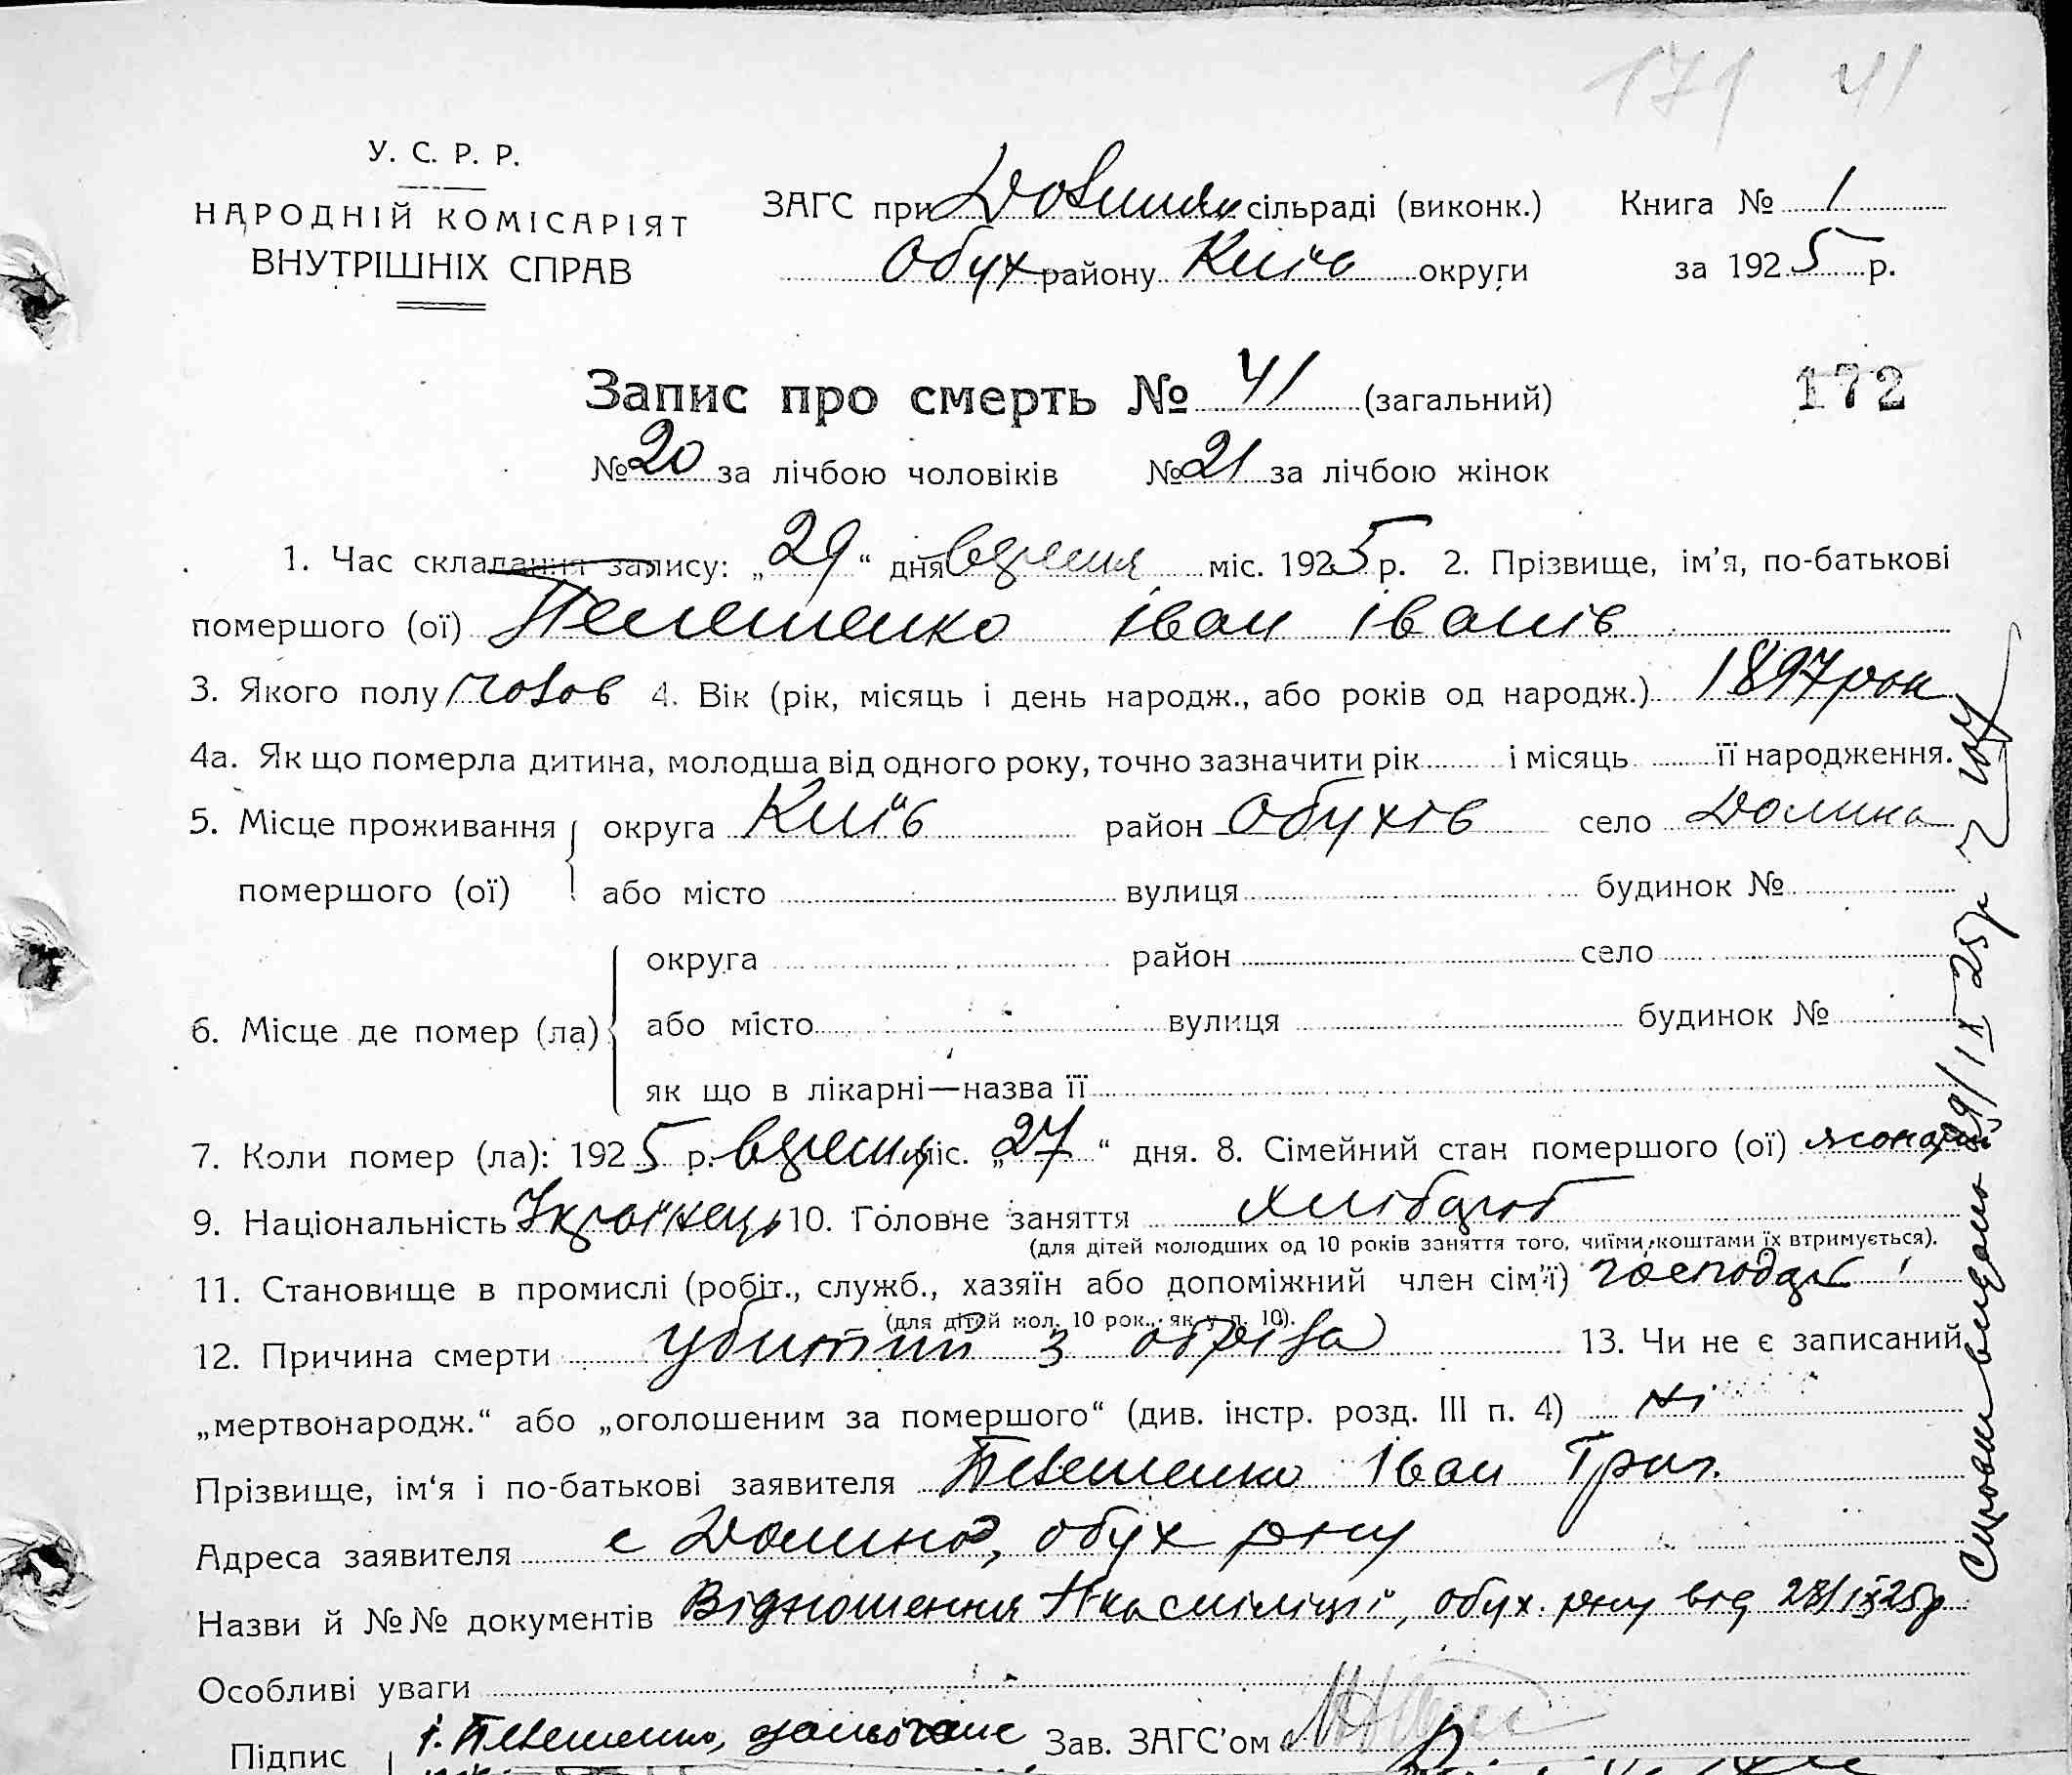 171 41
У. С. Р. Р.
НАРОДНІЙ КОМІСАРІЯТ
ВНУТРІШНІХ СПРАВ
ЗАГС при Долинян сільраді (виконк.)
Обух району Київ округи
Книга № 1
за 1925 р.
Запис про смерть № 41 (загальний)
172
№ 20 за лічбою чоловіків № 21 за лічбою жінок
1. Час складання запису: „29“ дня вересня міс. 1925 р. 2. Прізвище, ім’я, по-батькові
помершого (ої) Пелешенко Іван Іванів
3. Якого полу чолов 4. Вік (рік, місяць і день народж., або років од народж.) 1897 рок
4а. Як що померла дитина, молодша від одного року, точно зазначити рік і місяць її народження.
5. Місце проживання округа Київ район Обухів село Долина
помершого (ої) або місто вулиця будинок №
округа район село
6. Місце де помер (ла) або місто вулиця будинок №
як що в лікарні—назва її
7. Коли помер (ла): 1925 р. вересня міс. „27“ дня. 8. Сімейний стан помершого (ої) жонатий
9. Національність Українець 10. Головне заняття хлібороб
(для дітей молодших од 10 років заняття того, чиїми коштами їх втримується).
11. Становище в промислі (робіт., служб., хазяїн або допоміжний член сім’ї) господар
(для дітей мол. 10 рок., як у п. 10).
12. Причина смерти убитий з обріза 13. Чи не є записаний
„мертвонародж.“ або „оголошеним за помершого“ (див. інстр. розд. III п. 4) ні
Прізвище, ім‘я і по-батькові заявителя Пелешенко Іван Григ.
Адреса заявителя с Долина, обух р-ну
Назви й №№ документів Відношення Н-ка міліції, обух. р-ну від 28/IX 25 р
Особливі уваги
Підпис І. Пелешенко, Зав. ЗАГС’ом
видано 29/IX 25 р